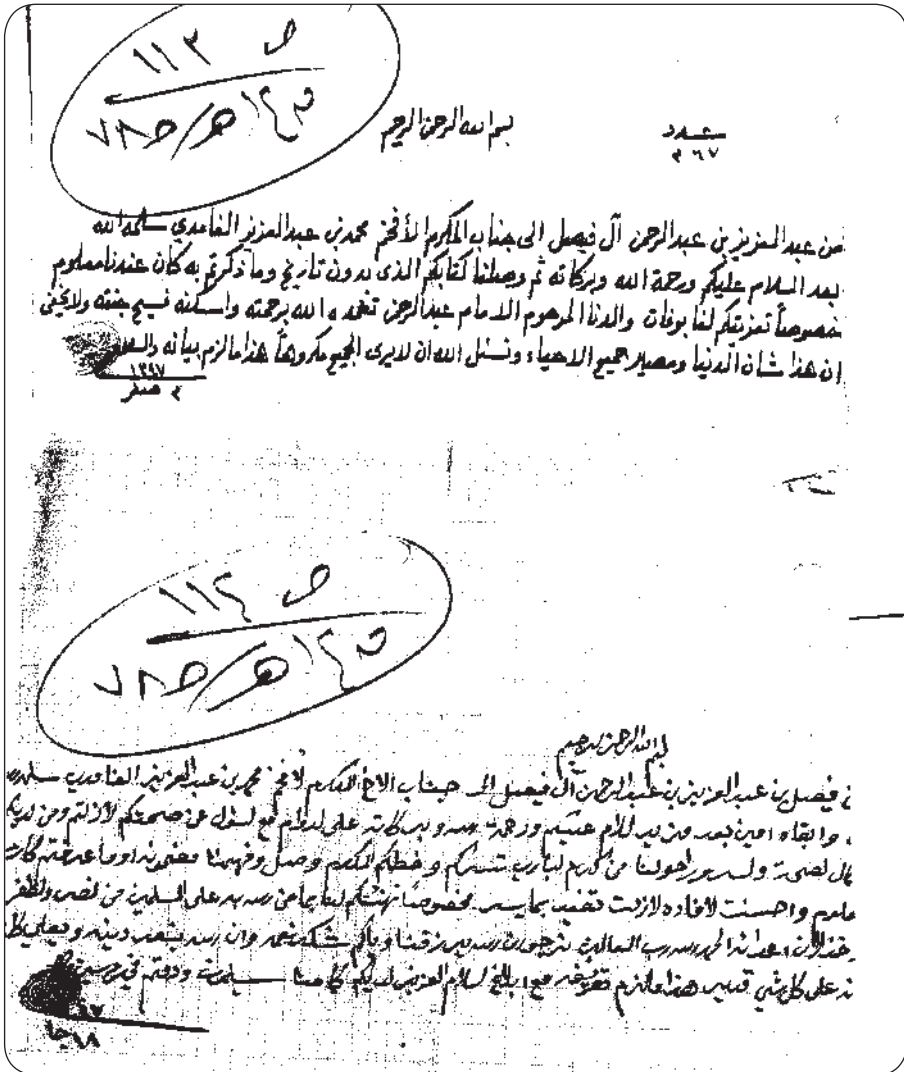 ص ١١٣
بسم الله الرحمن الرحيم
عدد
٣٦٧
من عبد العزيز بن عبد الرحمن آل فيصل الى جناب المكرم الأفخم محمد بن عبد العزيز الغامدي سلمه الله
بعد السلام عليكم ورحمة الله وبركاته ثم وصلنا كتابكم الذى بدون تاريخ وما ذكرتم به كان عندنا معلوم
خصوصاً تعزيتكم لنا بوفات والدنا المرحوم الامام عبد الرحمن تغمده الله برحمته واسكنه فسيح جنته ولا يخفى
ان هذا شان الدنيا ومصير جميع الاحياء ونسئل الله ان لا يرى الجميع مكروهاً هذا ما لزم بيانه والسلام
صفر
ص ١١٤
بسم الله الرحمن الرحيم
فيصل بن عبد العزيز بن عبد الرحمن آل فيصل الى جناب الاخ المكرم الافخم محمد بن عبد العزيز الغامدي سلمه
وابقاه امين بعد السلام عليكم ورحمة الله وبركاته على الدوام مع السؤال عن صحتكم لازلتم
وخطكم المكرم وصل وفهمنا مضمونه وما عرفتم كان
معلوم واحسنت الافاده لازلت خصوصاً تهنئتكم لنا بما من الله به على المسلمين من النصر والظفر
الحمد لله رب العالمين نرجو ان الله يرزقنا واياكم شكر نعمه وان الله ينصر دينه ويعلي
على كل شي قدير هذا ما لزم تعريفه مع ابلاغ السلام العزيز لديكم كما منا